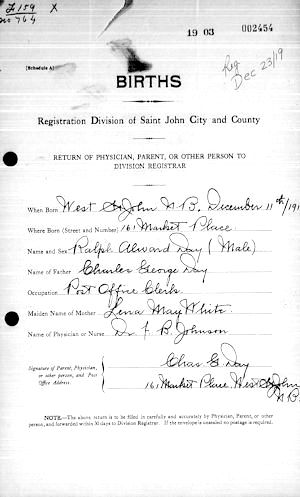 Z 159 X
No 764
19 03 002454
(Schedule A)
Reg
Dec 23/19
BIRTHS
Registration Division of Saint John City and County
RETURN OF PHYSICIAN, PARENT, OR OTHER PERSON TO
DIVISION REGISTRAR
When Born West St John N B. December 11th/191
Where Born (Street and Number) 161 Market Place
Name and Sex Ralph Alward Day (Male)
Name of Father Charles George Day
Occupation Post Office Clerk
Maiden Name of Mother Lena May White
Name of Physician or Nurse Dr J B. Johnson
Signature of Parent, Physician,
or other person, and Post
Office Address
Chas G. Day
161 Market Place West St John
N B.
NOTE.—The above return is to be filled in carefully and accurately by Physician, Parent, or other
person, and forwarded within 30 days to Division Registrar. If the envelope is unsealed no postage is required.